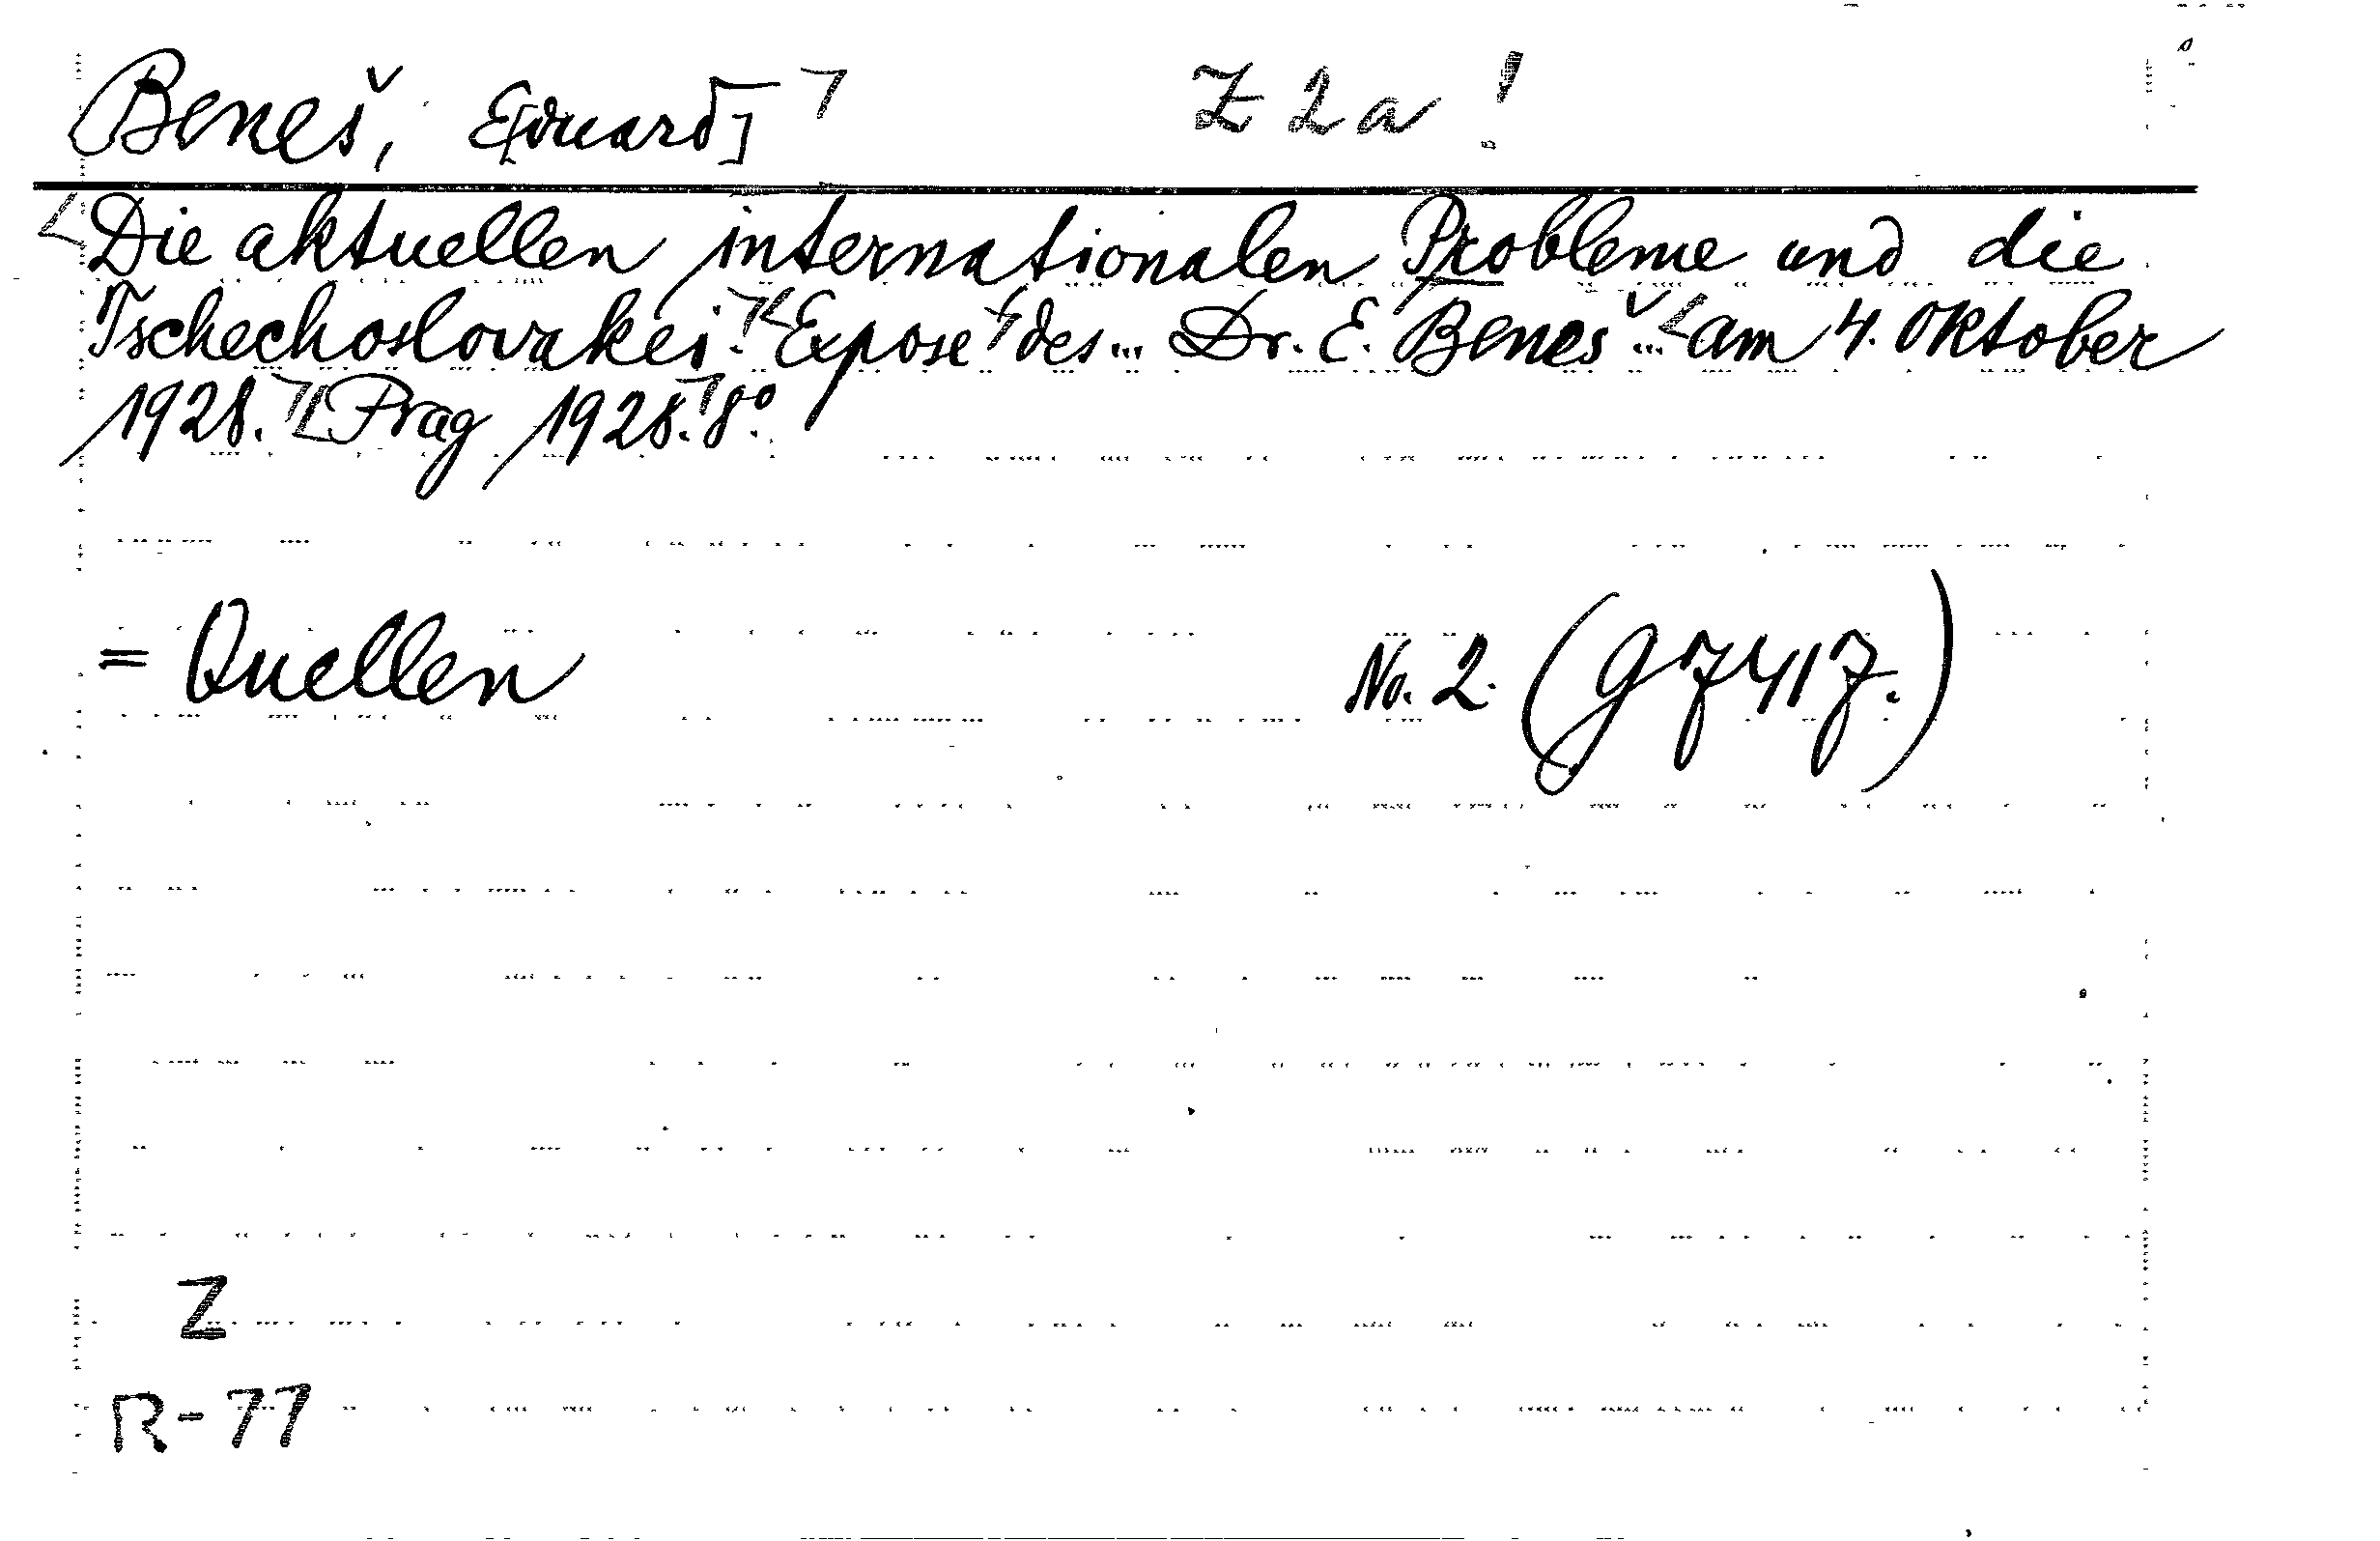 Beneš, E[duard] Z 2a!
Die aktuellen internationalen Probleme und die
Tschechoslovakei. Expose des... Dr. E. Beneš... am 4. Oktober
1928. Prag 1928. 8°.
= Quellen No. 2. (g 7417.)
Z
R-77